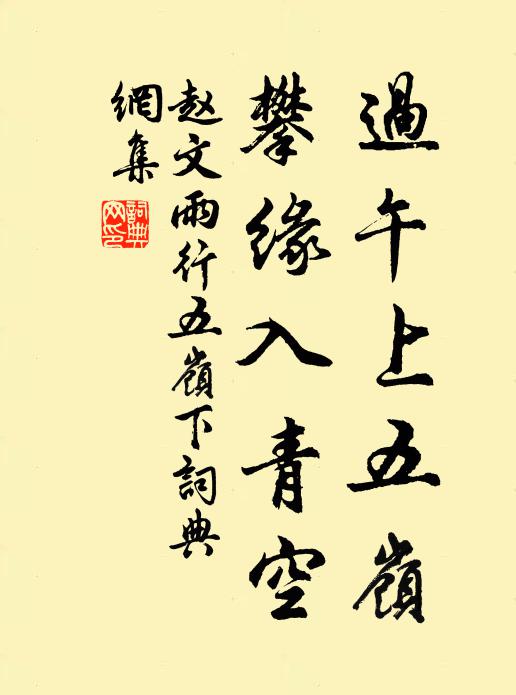 過午上五嶺
攀緣入青空
赵文雨行五嶺下詞典
網集
詞典
网印